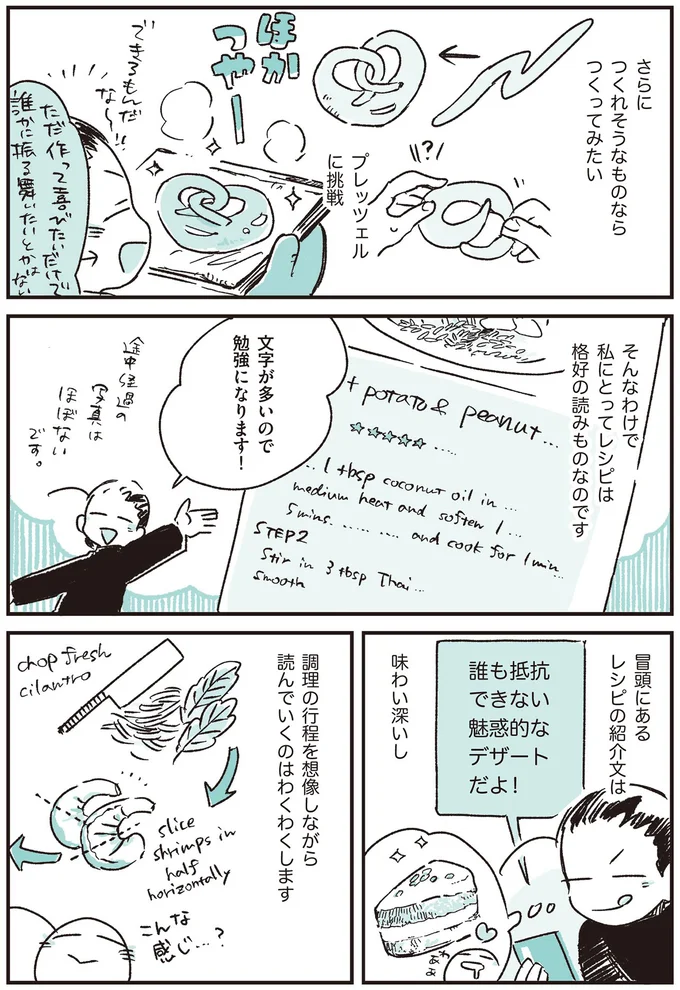 さらに
つくれそうなものなら
つくってみたい
「?」
プレッツェル
に挑戦
ほか
つやー
できるもんだ
な〜!!
ただ作って喜びたいだけで
誰かに振る舞いたいとかはない
そんなわけで
私にとってレシピは
格好の読みものなのです
+ potato & peanut...
☆☆☆☆☆ .....
... 1 tbsp coconut oil in ...
medium heat and soften 1 ...
5 mins. ......... and cook for 1 min...
STEP2
Stir in 3 tbsp Thai...
smooth
文字が多いので
勉強になります!
途中経過の
写真は
ほぼない
です。
冒頭にある
レシピの紹介文は
誰も抵抗
できない
魅惑的な
デザート
だよ!
味わい深いし
わぁぉ
調理の行程を想像しながら
読んでいくのはわくわくします
chop fresh
cilantro
slice
shrimps in
half
horizontally
こんな
感じ…?